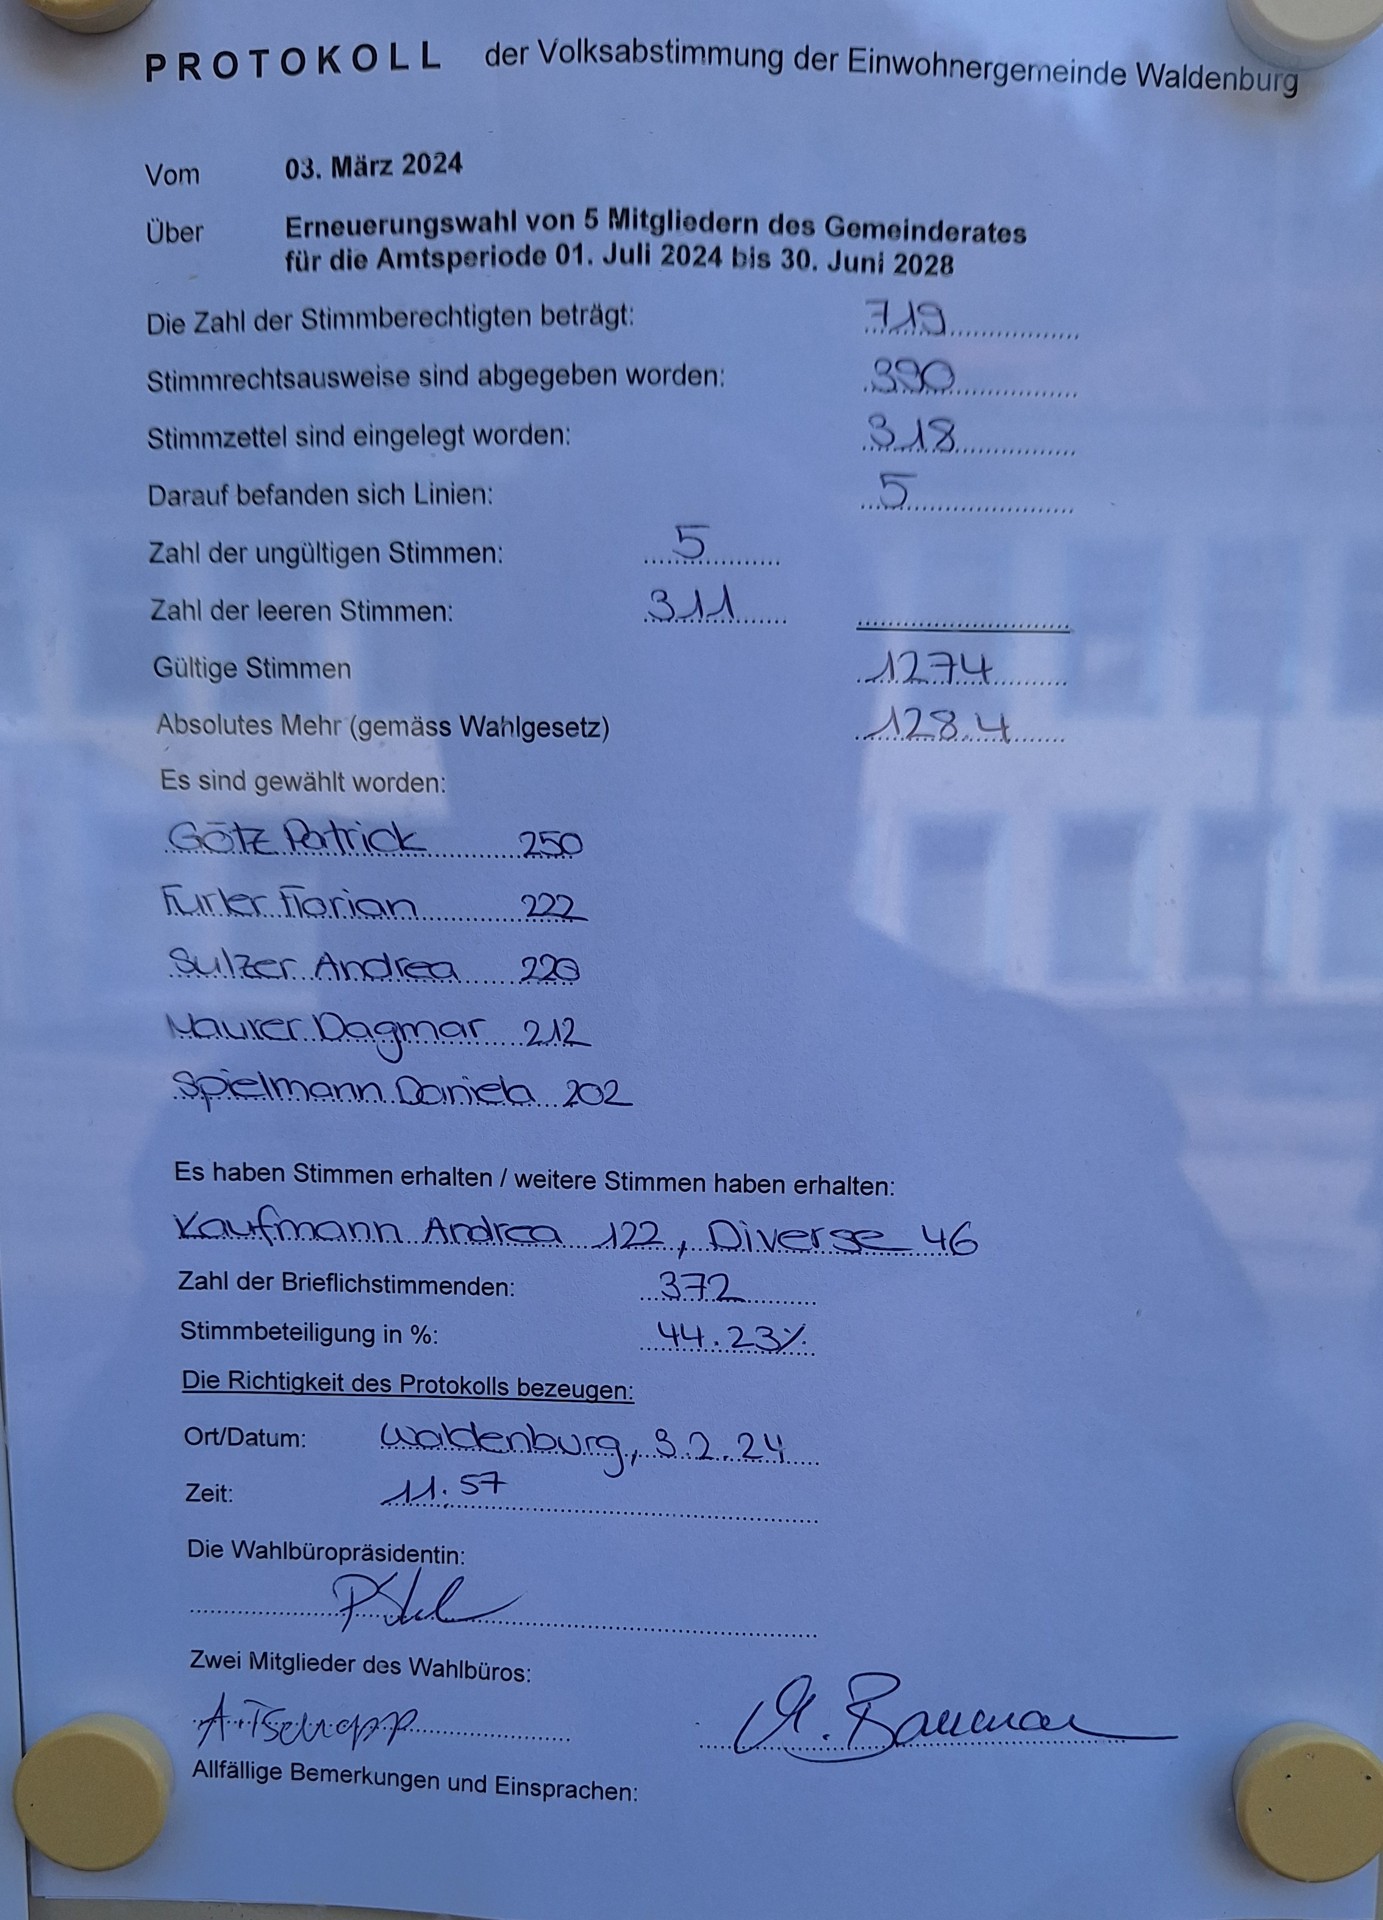 PROTOKOLL der Volksabstimmung der Einwohnergemeinde Waldenburg
Vom 03. März 2024
Über Erneuerungswahl von 5 Mitgliedern des Gemeinderates
für die Amtsperiode 01. Juli 2024 bis 30. Juni 2028
Die Zahl der Stimmberechtigten beträgt: 719
Stimmrechtsausweise sind abgegeben worden: 390
Stimmzettel sind eingelegt worden: 318
Darauf befanden sich Linien: 5
Zahl der ungültigen Stimmen: 5
Zahl der leeren Stimmen: 311
Gültige Stimmen 1274
Absolutes Mehr (gemäss Wahlgesetz) 128.4
Es sind gewählt worden:
Götz Patrick 250
Furler Florian 222
Sulzer Andrea 220
Maurer Dagmar 212
Spielmann Daniela 202
Es haben Stimmen erhalten / weitere Stimmen haben erhalten:
Kaufmann Andrea 122, Diverse 46
Zahl der Brieflichstimmenden: 372
Stimmbeteiligung in %: 44.23%
Die Richtigkeit des Protokolls bezeugen:
Ort/Datum: Waldenburg, 3.2.24
Zeit: 11.57
Die Wahlbüropräsidentin:
Zwei Mitglieder des Wahlbüros:
A. Tschopp
Allfällige Bemerkungen und Einsprachen: